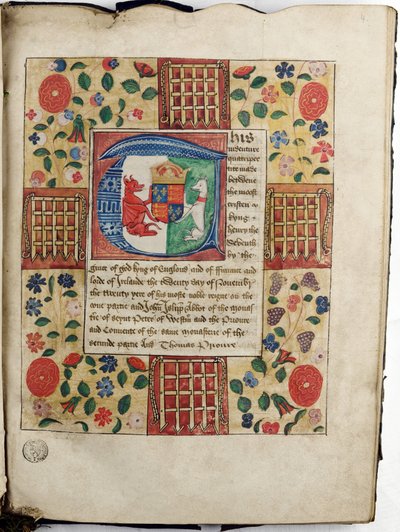 This
indenture
quatripar
tite made
betwene
the moost
cristen
kyng
henry the
Seventh
by the
grace of god kyng of Englond and of Fraunce and
lorde of Irlande the twenty day of Novembr
the twenty yere of his moste noble reigne on the
one partie and John Islipp Abbot of the monas
tie of seynt Peter of Westm and the Prioure
and Convente of the same monasterie of the
secunde partie And Thomas Prioure
4